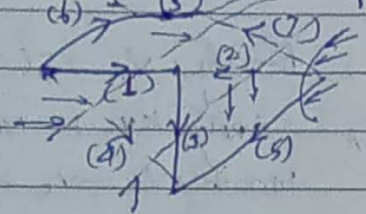 (6) (3)
(7)
(1) (2)
(4) (3) (5)
1